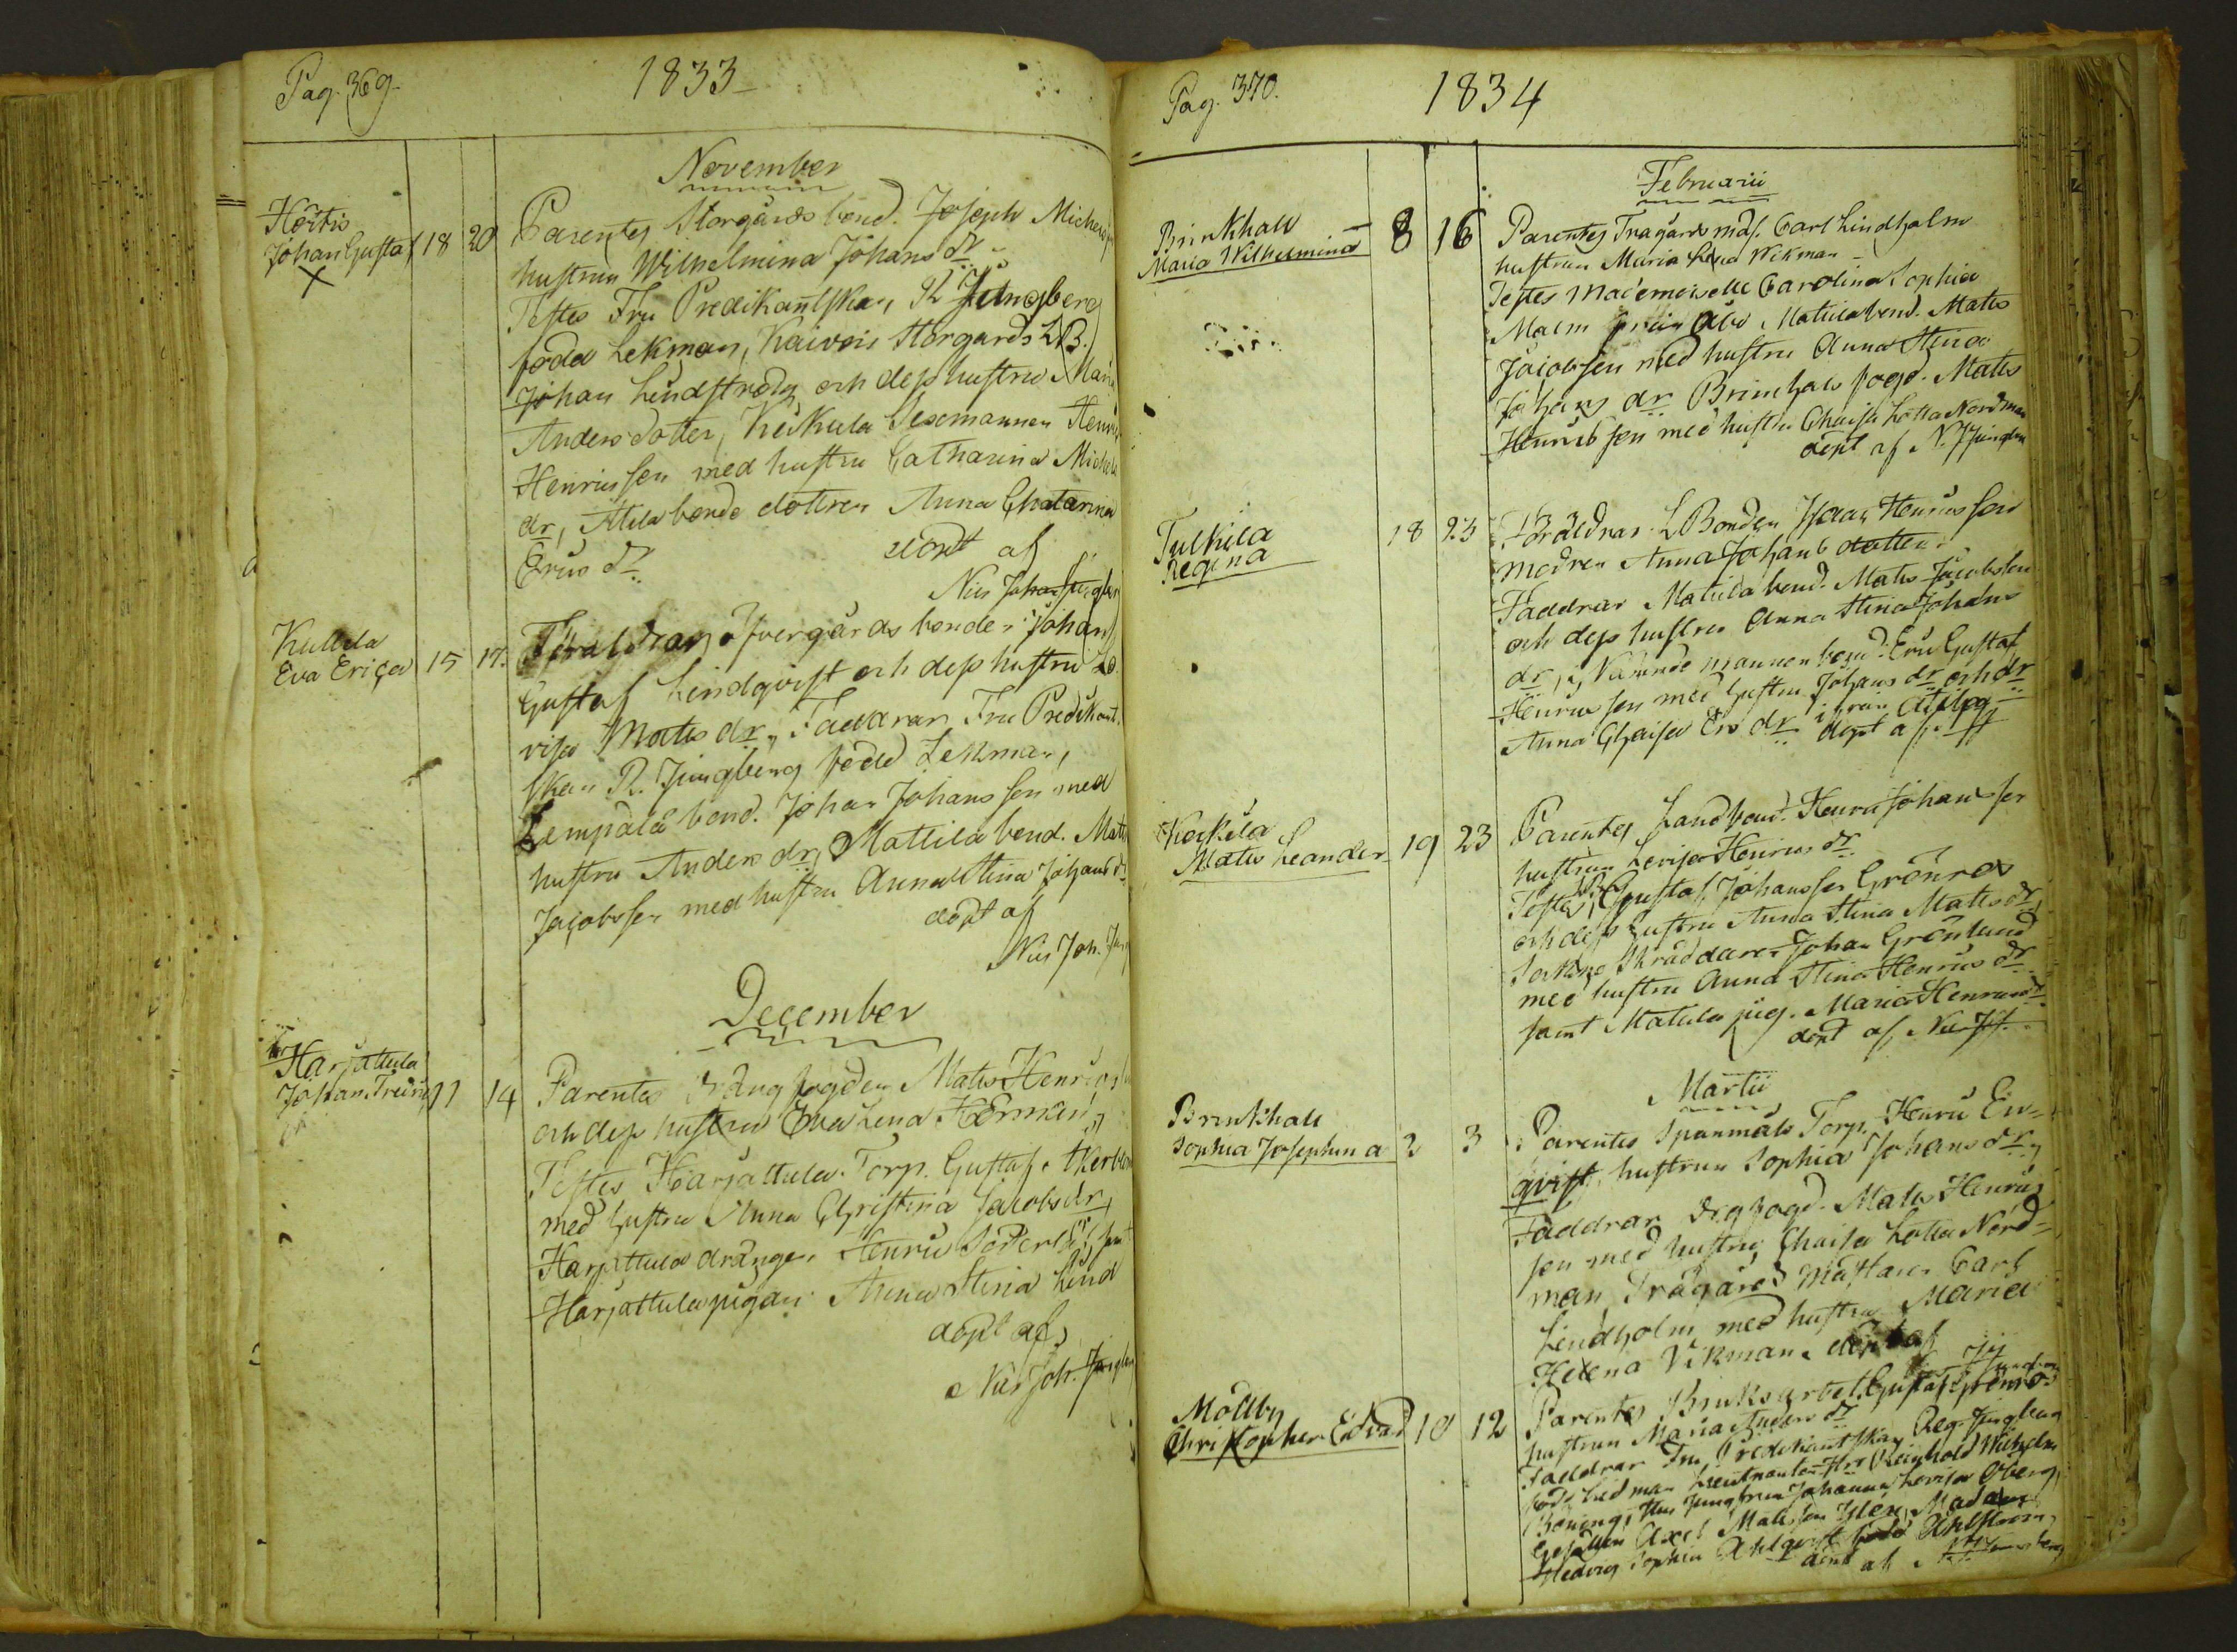 Pag. 369.
1833
November
Hörtis
Johan Gustaf 18 20
Parentes Storgårds bond. Joseph Michels
hustrun Wilhelmina Johans dr
Testes Fru Predikantskan, R Jungberg
född Lekman, Kaivois Storgårds LB.
Johan Lindström och dess hustru Maria
Anders dotter, Keikula Sexmannen Henric
Henricsson med hustru Catharina Michels
dr, Atila bonde dottren Anna Chatarina
Erics dr döpt af
Nils Johan Jungber
Kullila
Eva Erica 15 17.
Föräldrar Öfvergårds bonden Johan
Gustaf Lindqvist och dess hustru Lo
visa Mats dr, Faddrar Fru Predikant
skan R. Jungberg född Lekman,
Lempälä bond. Johan Johansson med
hustru Anders dr, Mattila bond. Mats
Jacobsson med hustru Anna Stina Johans dr
döpt af
Nils Joh. Jung
December
Harjattula
Johan 11 14
Parentes Drängfogden Mats Henrics
och dess hustru Eva Lena Herman,
Testes Harjattula Torp. Gustaf Åkerblom
med hustru Anna Christina Jacobs dr,
Harjattula drängen Henric Söderl samt
Harjattula pigan Anna Stina Lind
döpt af
Nils Joh. Jungber
Pag. 370.
1834
Februarii
Brinkhall
Maria Wilhelmina 8 16
Parentes Tragårds mäs. Carl Lindholm
hustrun Maria Lena Wikman
Testes Mademoiselle Carolina Sophia
Malm från Åbo, Matila bond. Mats
Jacobsson med hustru Anna Stina
Johans dr Brinkhals fogd. Mats
Henricsson med hustru Chaisa Lotta Nordman
döpt af N. J Jungber
Tulkila
Regina 18 23
Föräldrar L Bonden Isaac Henricsson
modren Anna Johans dotter
Faddrar Matila bond. Mats Jacobsson
och dess hustru Anna Stina Johans
dr, Nämndemannen bond. Eric Gustaf
Henricsson med hustru Johans dr och dr
Anna Chaisa Ers dr ifrån Attila
döpt af
Keikila
Mats Leander 19 23
Parentes Landbond. Henric Johansson
hustrun Lovisa Henrics dr
Testes, Gustaf Johansson Grönros
och dess hustru Anna Stina Mats dr,
Sockne Skräddaren Johan Grönlund
med hustru Anna Stina Henrics dr
samt Matula pig. Maria Henrics dr
döpt af
Martii
Brinkhall
Sophia Josephina 2 3
Parentes Spanmåls Torp. Henric En=
qvist, hustrun Sophia Johans dr,
Faddrar Drgfogd. Mats Henrics
son med hustru Chaisa Lotta Nord=
man, Trägårds mästaren Carl
Lindholm med hustru Maria
Helena Vikman. döpt af
Mollby
Christopher Edvard 10 12
Parentes Bruksarbet. Gustaf Grönroos
hustrun Maria Anders dr
Faddrar Fru Predikantskan Reg. Jungberg
född Lekman Lieutnanten Hrr Reinhold Wilhelm
Boning, Jungfrun Johanna Lovisa Öberg,
Gesällen Axel Matsson Ylen, Madam
Hedvig Sophia Ahlqvist född Ahlström
döpt af